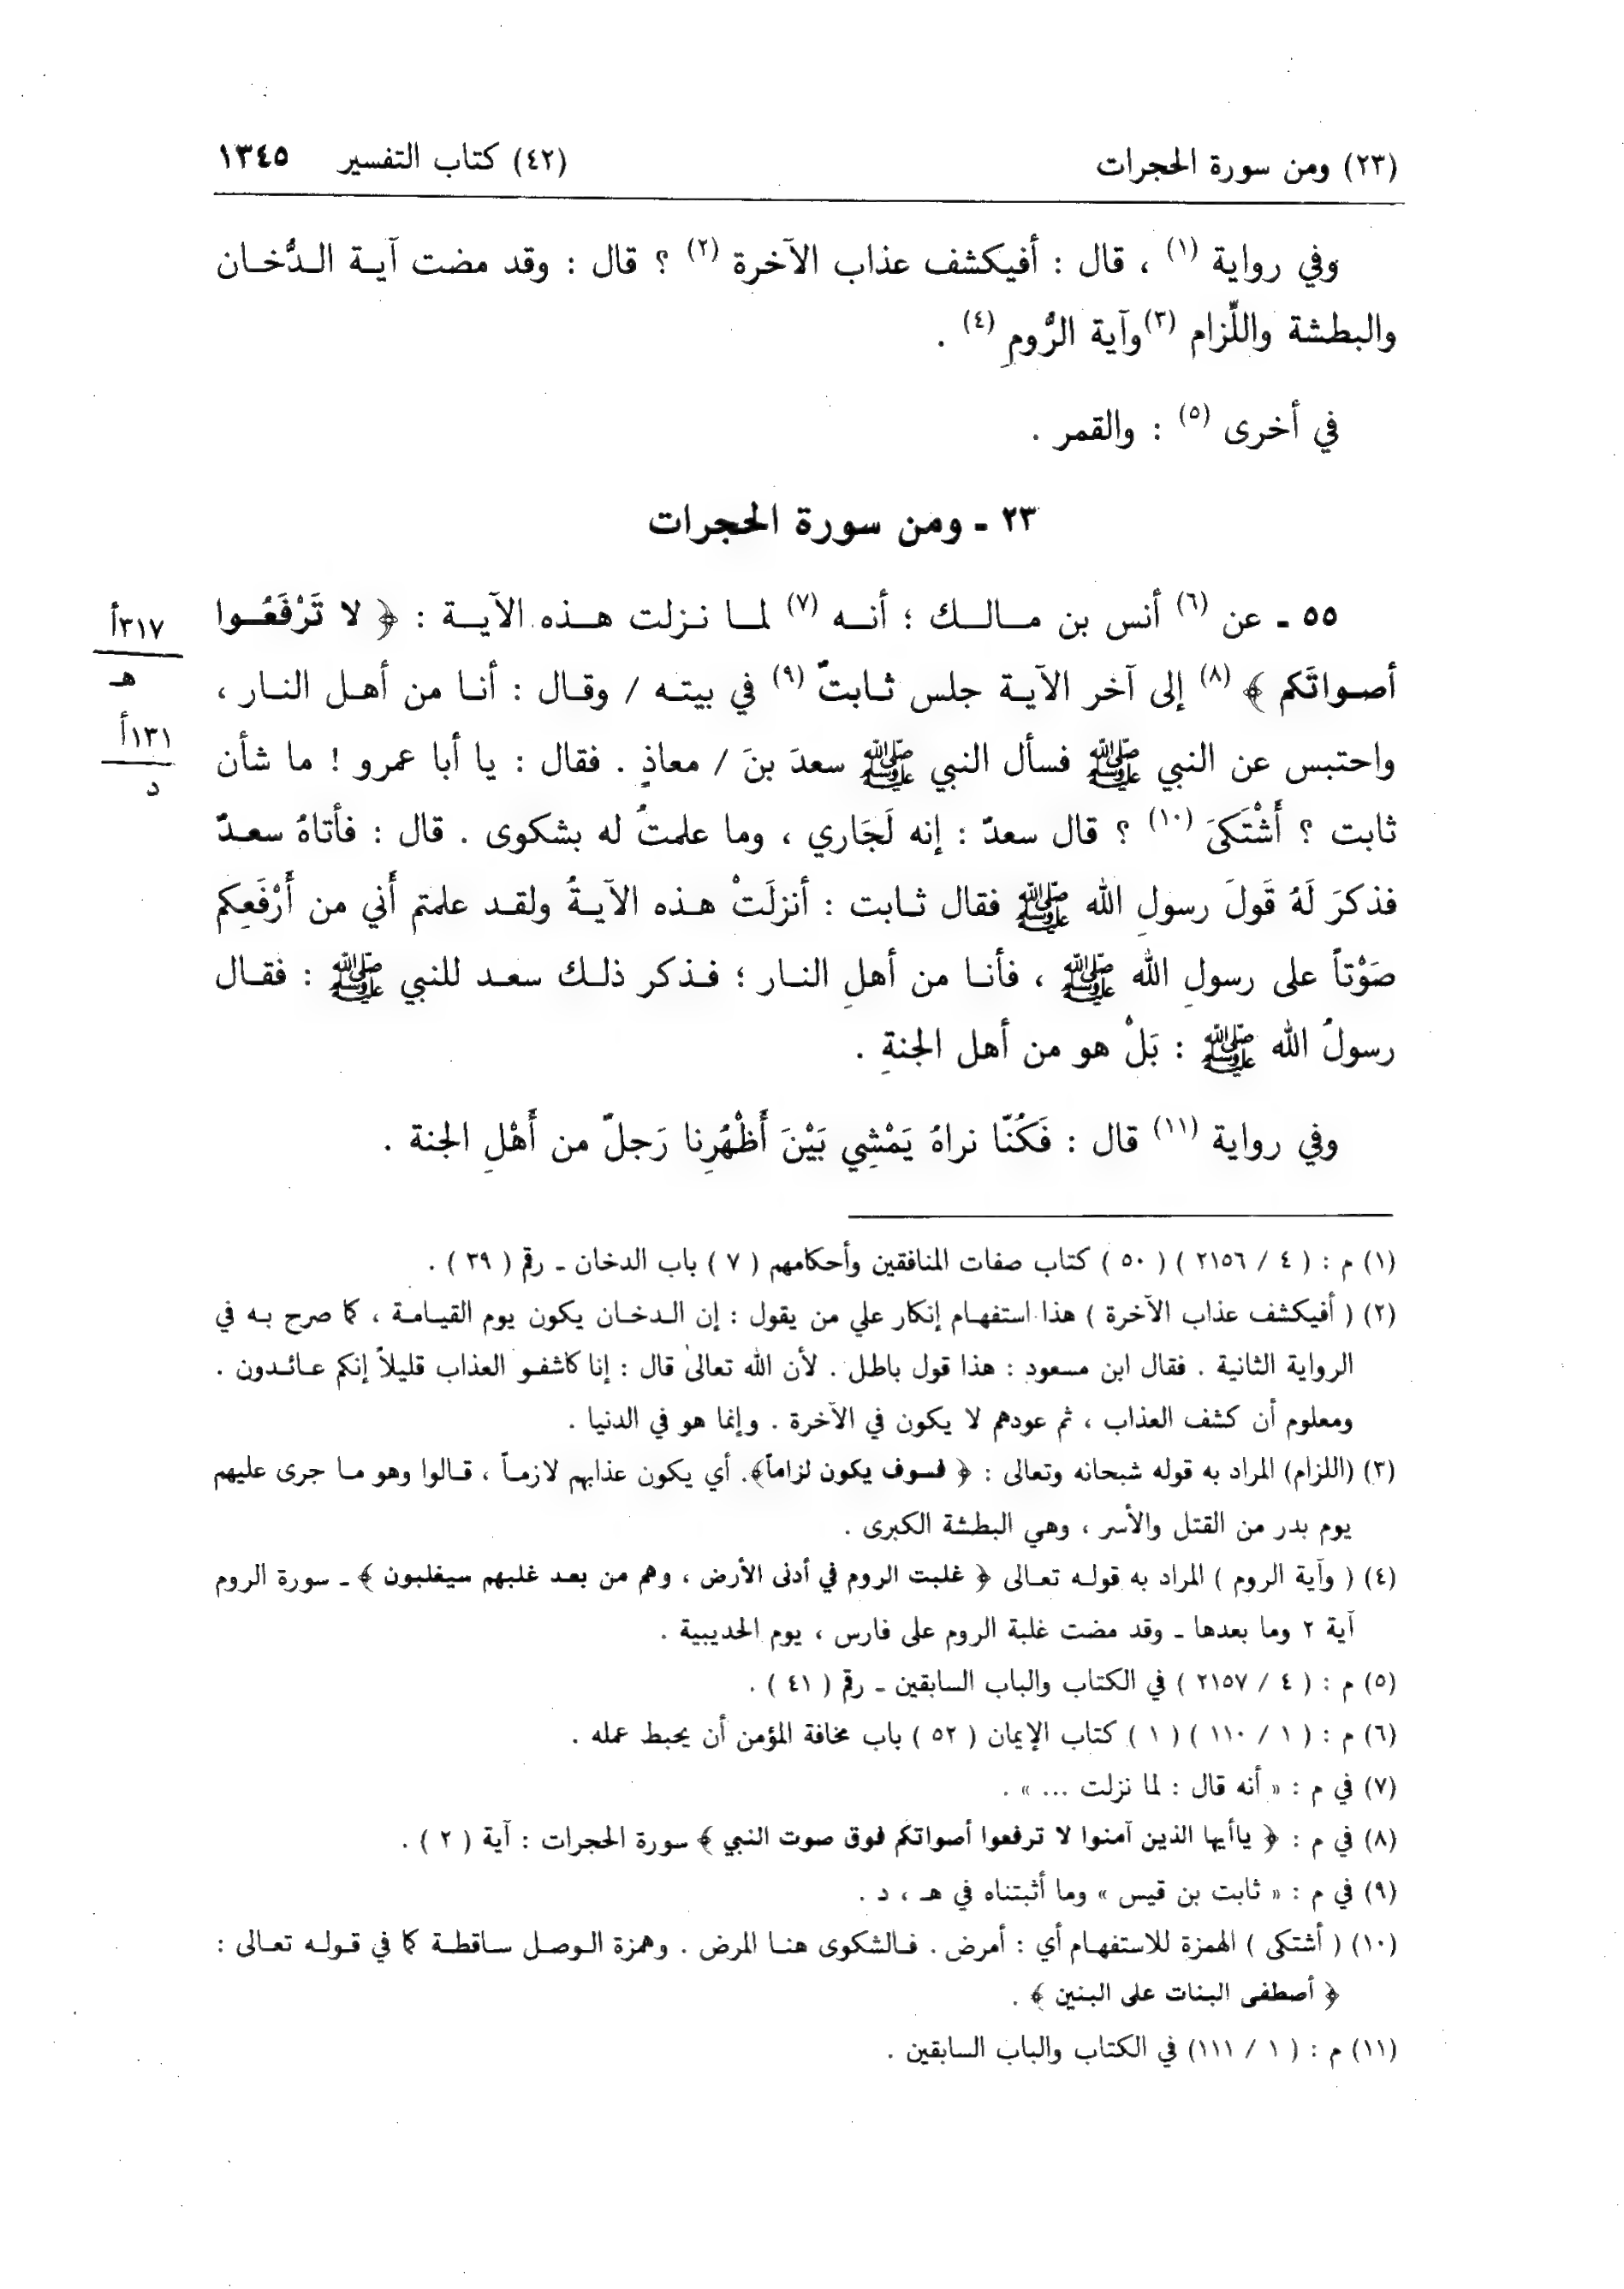 (٢٣) ومن سورة الحجرات (٤٢) كتاب التفسير ١٣٤٥
وفي رواية (١) ، قال : أفيكشف عذاب الآخرة (٢) ؟ قال : وقد مضت آية الدُّخان
والبطشة واللِّزام (٣) وآية الرُّومِ (٤) .
في أخرى (٥) : والقمر .
٢٣ ـ ومن سورة الحجرات
٥٥ ـ عن (٦) أنس بن مالك ؛ أنه (٧) لما نزلت هذه الآية : ﴿ لا تَرْفَعُوا
أصواتَكم ﴾ (٨) إلى آخر الآية جلس ثابتٌ (٩) في بيته / وقال : أنا من أهل النار ،
واحتبس عن النبي ﷺ فسأل النبي ﷺ سعدَ بنَ / معاذٍ . فقال : يا أبا عمرو ! ما شأن
ثابت ؟ أَشْتَكىَ (١٠) ؟ قال سعدٌ : إنه لَجَاري ، وما علمتُ له بشكوى . قال : فأتاهُ سعدٌ
فذكرَ لَهُ قَولَ رسولِ الله ﷺ فقال ثابت : أنزلَتْ هذه الآيةُ ولقد علمتم أَني من أَرْفَعِكم
صَوْتاً على رسولِ الله ﷺ ، فأنا من أهلِ النار ؛ فذكر ذلك سعد للنبي ﷺ : فقال
رسولُ الله ﷺ : بَلْ هو من أهل الجنةِ .
وفي رواية (١١) قال : فَكُنّا نراهُ يَمْشِي بَيْنَ أَظْهُرِنا رَجلٌ من أَهْلِ الجنة .
٣١٧أ
هـ
١٣١أ
د
(١) م : ( ٤ / ٢١٥٦ ) ( ٥٠ ) كتاب صفات المنافقين وأحكامهم ( ٧ ) باب الدخان ـ رقم ( ٣٩ ) .
(٢) ( أفيكشف عذاب الآخرة ) هذا استفهام إنكار علي من يقول : إن الدخان يكون يوم القيامة ، كما صرح به في
الرواية الثانية . فقال ابن مسعود : هذا قول باطل . لأن الله تعالى قال : إنا كاشفو العذاب قليلاً إنكم عائدون .
ومعلوم أن كشف العذاب ، ثم عودهم لا يكون في الآخرة . وإنما هو في الدنيا .
(٣) (اللزام) المراد به قوله شبحانه وتعالى : ﴿ فسوف يكون لزاماً﴾. أي يكون عذابهم لازماً ، قالوا وهو ما جرى عليهم
يوم بدر من القتل والأسر ، وهي البطشة الكبرى .
(٤) ( وآية الروم ) المراد به قوله تعالى ﴿ غلبت الروم في أدنى الأرض ، وهم من بعد غلبهم سيغلبون ﴾ ـ سورة الروم
آية ٢ وما بعدها ـ وقد مضت غلبة الروم على فارس ، يوم الحديبية .
(٥) م : ( ٤ / ٢١٥٧ ) في الكتاب والباب السابقين ـ رقم ( ٤١ ) .
(٦) م : ( ١ / ١١٠ ) ( ١ ) كتاب الإيمان ( ٥٢ ) باب مخافة المؤمن أن يحبط عمله .
(٧) في م : « أنه قال : لما نزلت ... » .
(٨) في م : ﴿ ياأيها الذين آمنوا لا ترفعوا أصواتكم فوق صوت النبي ﴾ سورة الحجرات : آية ( ٢ ) .
(٩) في م : « ثابت بن قيس » وما أثبتناه في هـ ، د .
(١٠) ( أشتكى ) الهمزة للاستفهام أي : أمرض . فالشكوى هنا المرض . وهمزة الوصل ساقطة كما في قوله تعالى :
﴿ أصطفى البنات على البنين ﴾ .
(١١) م : ( ١ / ١١١) في الكتاب والباب السابقين .